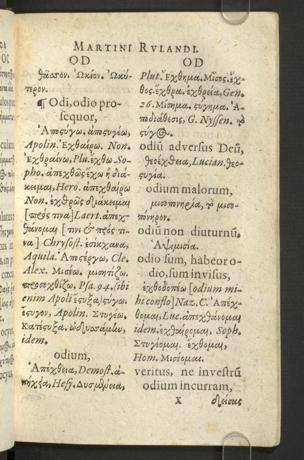 MARTINI RVLANDI.
OD
θᾶττον. Ὠκίον. Ὠκύ-
τερον.
¶ Odi, odio pro-
sequor,
Ἀποστυγῶ. ἀποστυγέω,
Apolin. Ἐχθαίρω. Non.
Ἐχθραίνω, Plu. ἐχθω So-
pho. ἀπεχθῶς ἔχω ἢ διά-
κειμαι, Hero. ἀπεχθαίρω
Non. ἐχθρῶς διάκειμαι
[πρός τινα] Laert. ἀπεχ-
θάνομαι [τινι & πρός τι-
να] Chrysost.
Aquila. Cle.
Alex. Μισέω. μισητίζω.
Psa. 94. sibi
enim Apoll
Apolin. Στυγέω.
idem.
odium,
Ἀπέχθεια, Demost.
Hesy. Δυσμένεια,
OD
Plut. Ἔχθημα. Μῖσος. ἔχ-
θος. ἔχθρα. ἐχθρεία, Gen.
26. Μίσημα. στύγημα. Ἀ-
G. Nyssen.
odiū adversus Deū,
θεοεχθεία, Lucian. θεο-
odium malorum,
μισοπονηρία, τὸ μισο-
πόνηρον.
odiū non diuturnū,
odio sum, habeor o-
dio, sum invisus,
ἐχθοδοπέω [odium mi-
hi conflo] Naz. C. Ἀπέχ-
θομαι, Luc. ἀπεχθάνομαι
idem. ἐχθαίρομαι, Soph.
Στυγέομαι. ἔχθομαι,
Hom. Μισέομαι.
veritus, ne investrū
odium incurram,
X